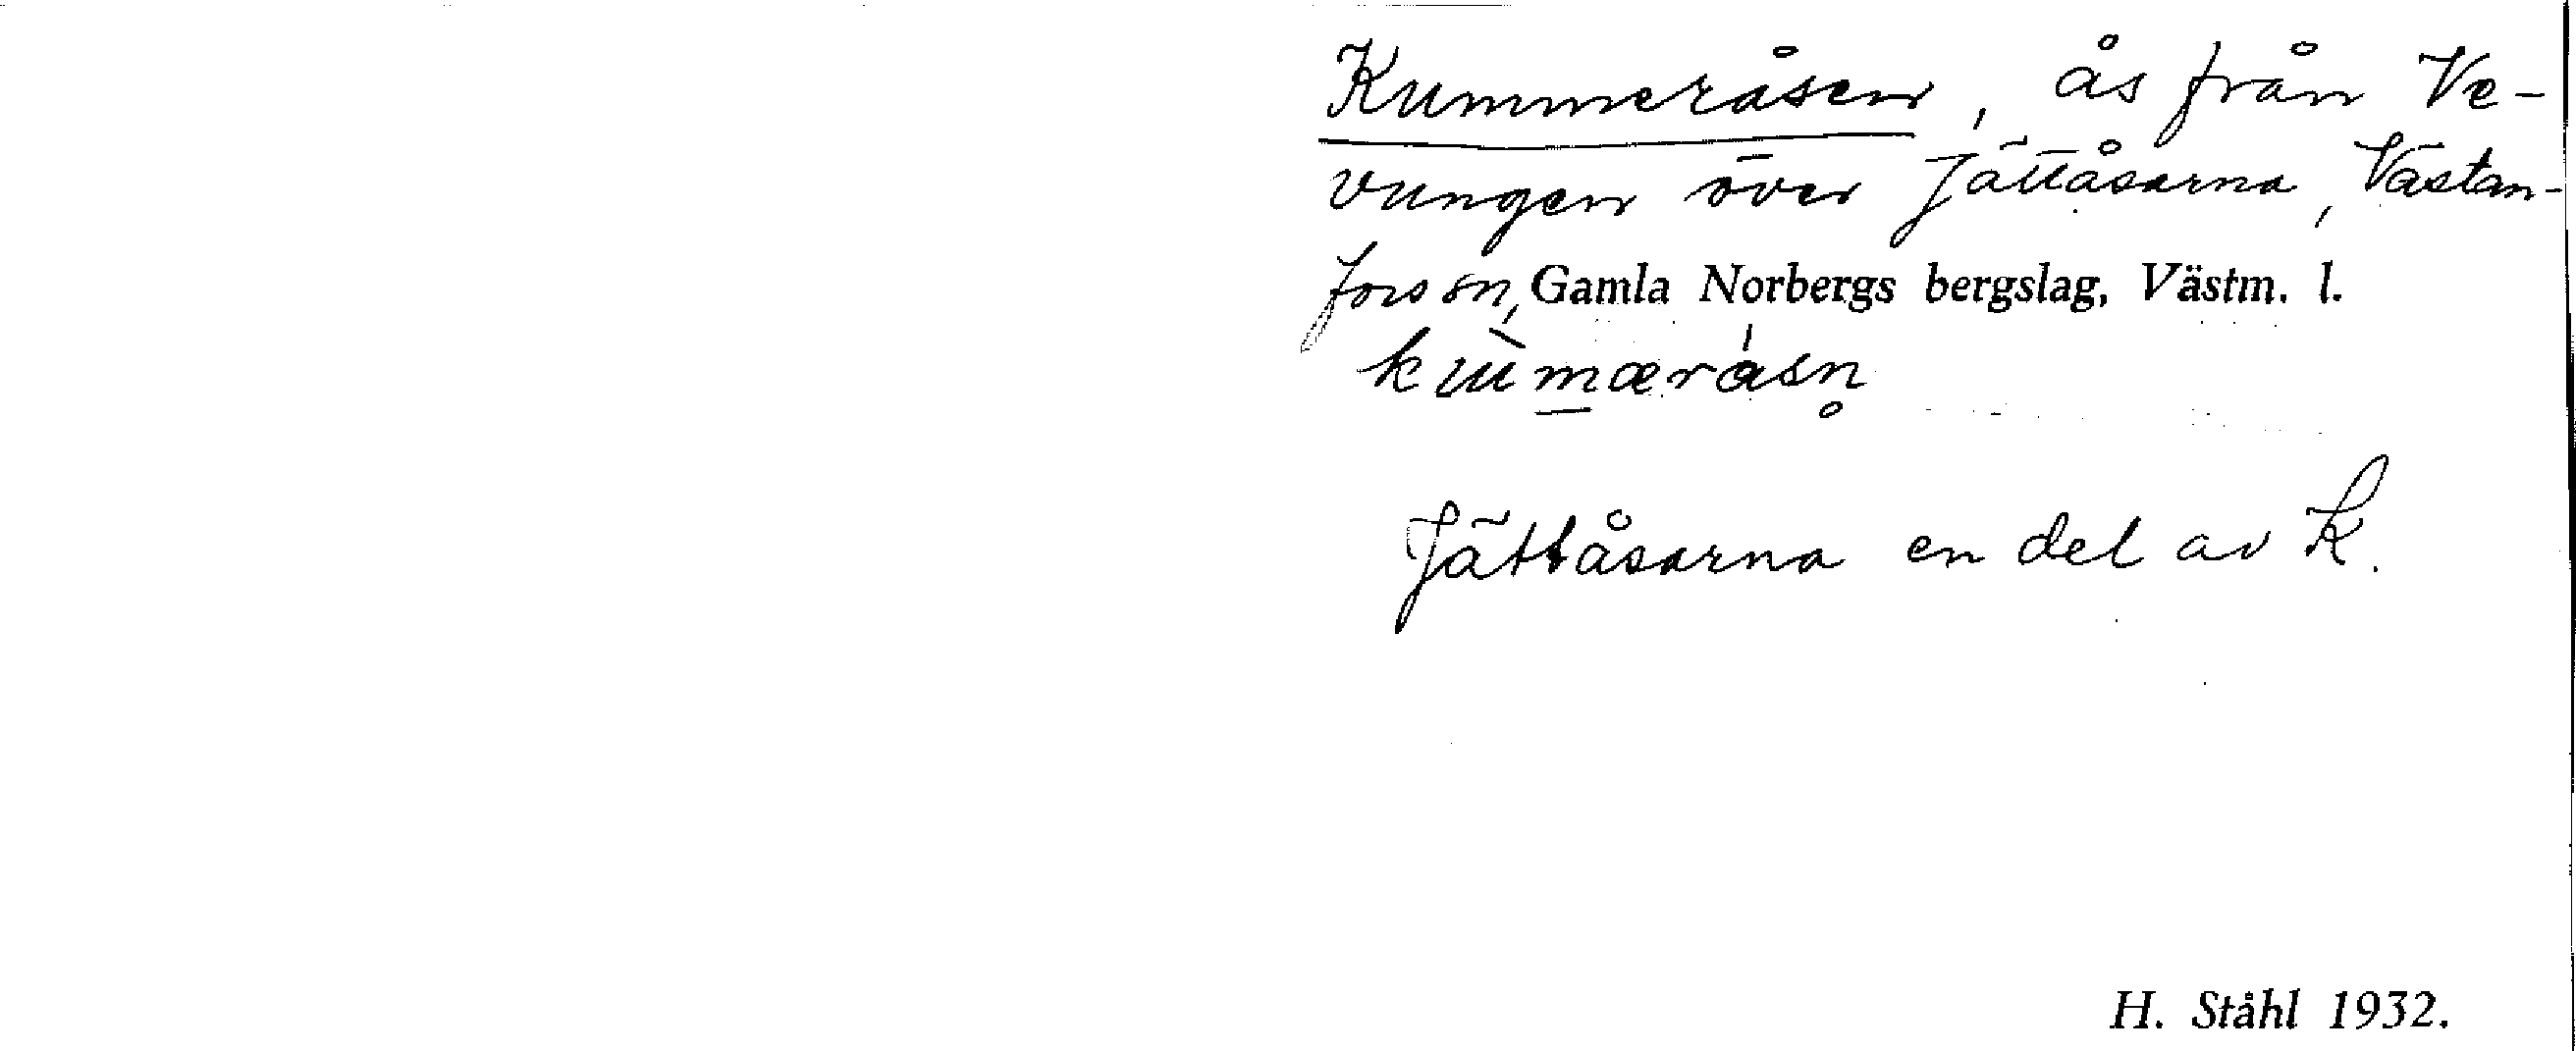 Kummeråsen, ås från Ve-
vungen över Jättåsarna, Västan-
fors sn, Gamla Norbergs bergslag, Västm. l.
Jättåsarna en del av K.
H. Ståhl 1932.